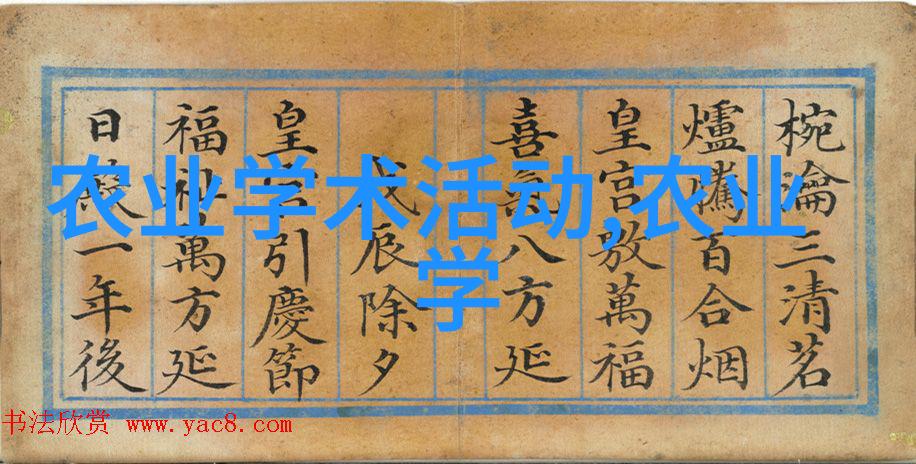 农业学术活动,农业
学
椀瀹三清茗
爐騰百合烟
皇宮敷萬福
喜氣八方延
戊辰除夕
皇宮引慶節
福祉萬方延
日一年後
书法欣赏 www.yac8.com